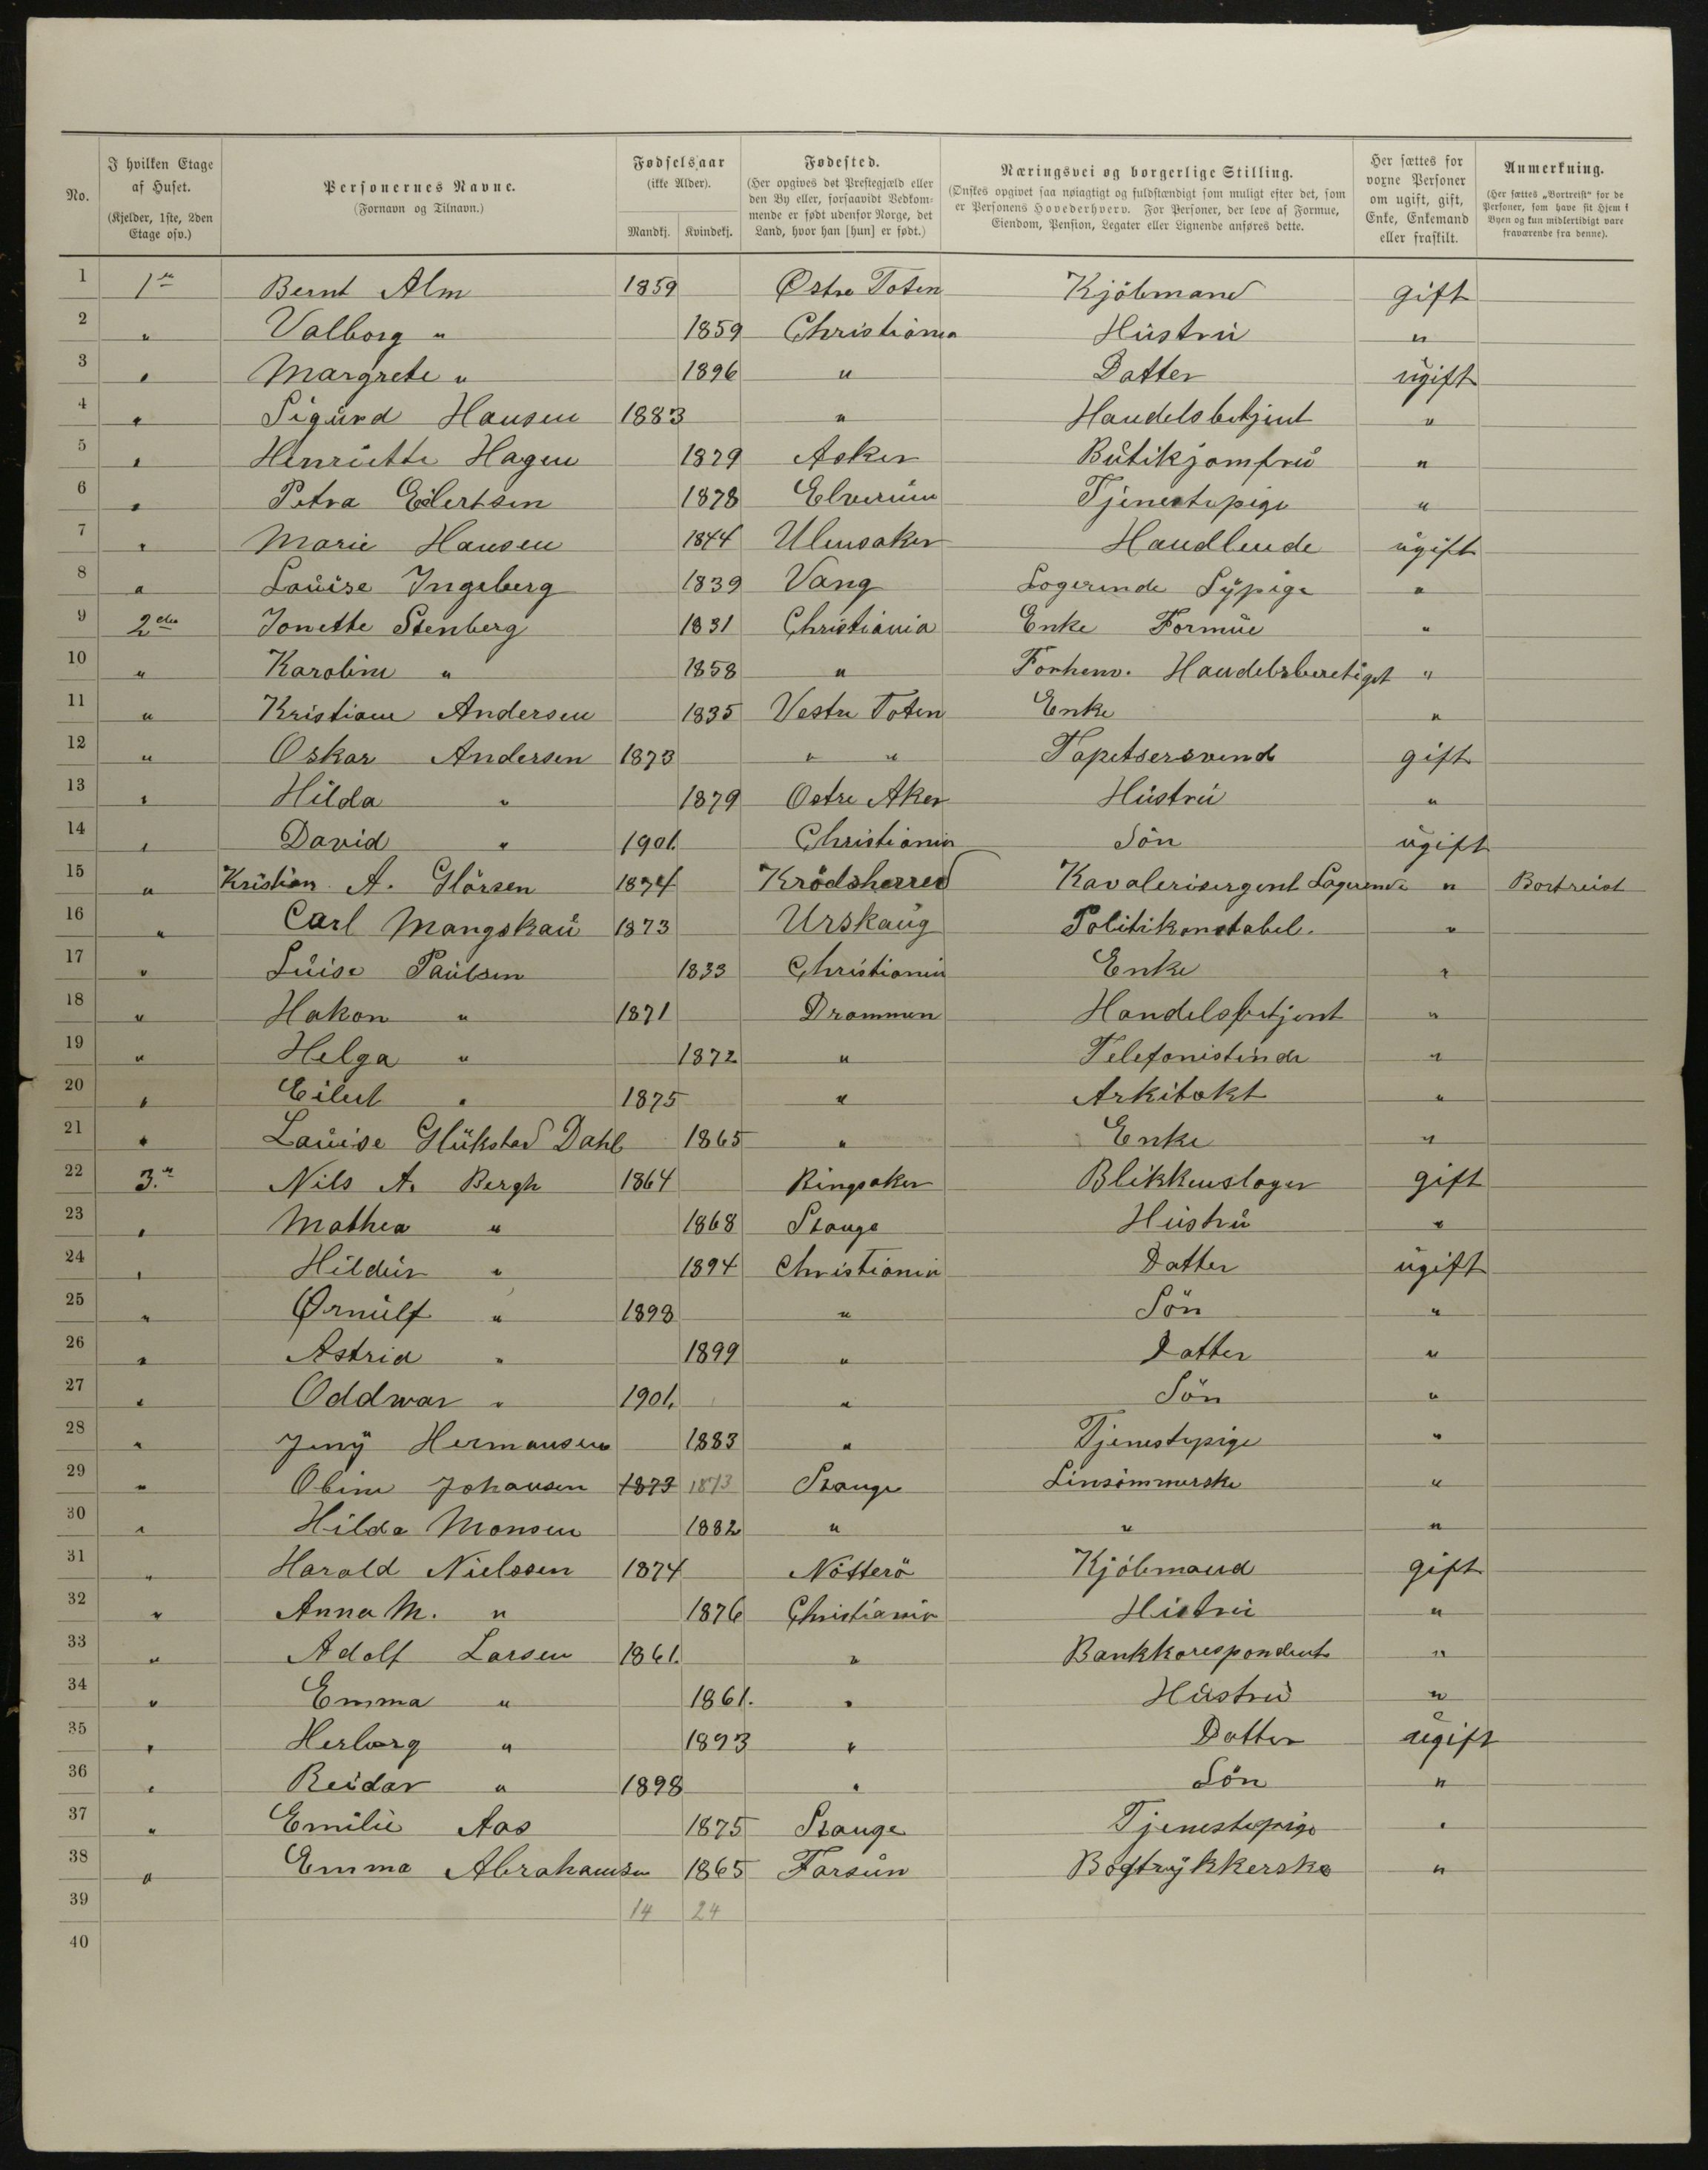 No. | I hvilken Etage af Huset. (Kjelder, 1ste, 2den Etage osv.) | Personernes Navne. (Fornavn og Tilnavn.) | Fødselsaar (ikke Alder). Mandkj. | Kvindekj. | Fødested. (Her opgives det Prestegjæld eller den By eller, forsaavidt Vedkommende er født udenfor Norge, det Land, hvor han [hun] er født.) | Næringsvei og borgerlige Stilling. (Ønskes opgivet saa nøiagtigt og fuldstændigt som muligt efter det, som er Personens Hovederhverv. For Personer, der leve af Formue, Eiendom, Pension, Legater eller Lignende anføres dette. | Her sættes for voxne Personer om ugift, gift, Enke, Enkemand eller fraskilt. | Anmerkning. (Her sættes „Bortreist“ for de Personer, som have sit Hjem i Byen og kun midlertidigt vare fraværende fra denne).
1 1ste Bernt Alm 1859 Østre Toten Kjöbmand gift
2 " Valborg " 1859 Christiania Hustru "
3 " Margrete " 1896 " Datter ugift
4 " Sigurd Hansen 1883 " Handelsbetjent "
5 " Henriette Hagen 1879 Asker Butikjomfru "
6 " Petra Eilertsen 1878 Elverum Tjenestepige "
7 " Marie Hansen 1844 Ulensaker Handlende ugift
8 " Louise Ingeberg 1839 Vang Logerende Sypige "
9 2den Jonette Stenberg 1831 Christiania Enke Formue "
10 " Karoline " 1858 " Forhenv. Handelsberetiget "
11 " Kristiane Andersen 1835 Vestre Toten Enke "
12 " Oskar Andersen 1873 " " Tapetsersvend gift
13 " Hilda " 1879 Ostre Aker Hustru "
14 " David " 1901. Christiania Sön ugift
15 " Kristian A. Glörsen 1874 Krödsherred Kavalerisergent Logerende " Bortreist
16 " Carl Mangskau 1873 Urskaug Politikonstabel. "
17 " Luise Paulsen 1833 Christiania Enke "
18 " Hakon " 1871 Drammen Handelsbetjent "
19 " Helga " 1872 " Telefonistinde "
20 " Eilert " 1875 " Arkitekt "
21 " Louise Glükstad Dahl 1865 " Enke "
22 3.die Nils A. Bergh 1864 Ringsaker Blikkenslager gift
23 " Mathea " 1868 Stange Hustru "
24 " Hildur " 1894 Christiania Datter ugift
25 " Ørnulf " 1898 " Sön "
26 " Astrid " 1899 " Datter "
27 " Oddwar " 1901. " Sön "
28 " Jeny Hermansen 1883 " Tjenestepige "
29 " Oline Johansen 1873 1873 Stange Linsömmerske "
30 " Hilda Monsen 1882 " " "
31 " Harald Nielssen 1874 Nötterö Kjöbmand gift
32 " Anna M. " 1876 Christiania Hustru "
33 " Adolf Larsen 1861. " Bankkorespondent "
34 " Emma " 1861. " Hustru "
35 " Herborg " 1893 " Datter ugift
36 " Reidar " 1898 " Sön "
37 " Emilie Aas 1875 Stange Tjenestepige "
38 " Emma Abrahamsen 1865 Farsun Bogtrykkerske "
39 14 24
40